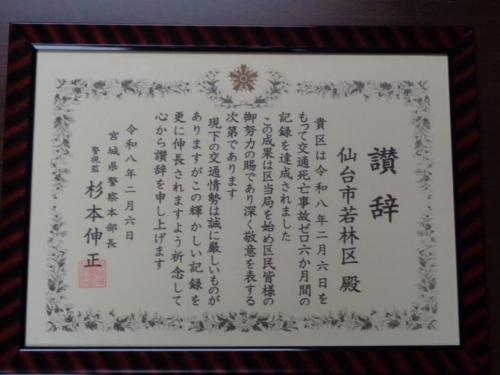 讃辞
仙台市若林区 殿
貴区は令和八年二月六日を
もって交通死亡事故ゼロ六か月間の
記録を達成されました
この成果は区当局を始め区民皆様の
御努力の賜であり深く敬意を表する
次第であります
現下の交通情勢は誠に厳しいものが
ありますがこの輝かしい記録を
更に伸長されますよう祈念して
心から讃辞を申し上げます
令和八年二月六日
宮城県警察本部長
警視監 杉本伸正